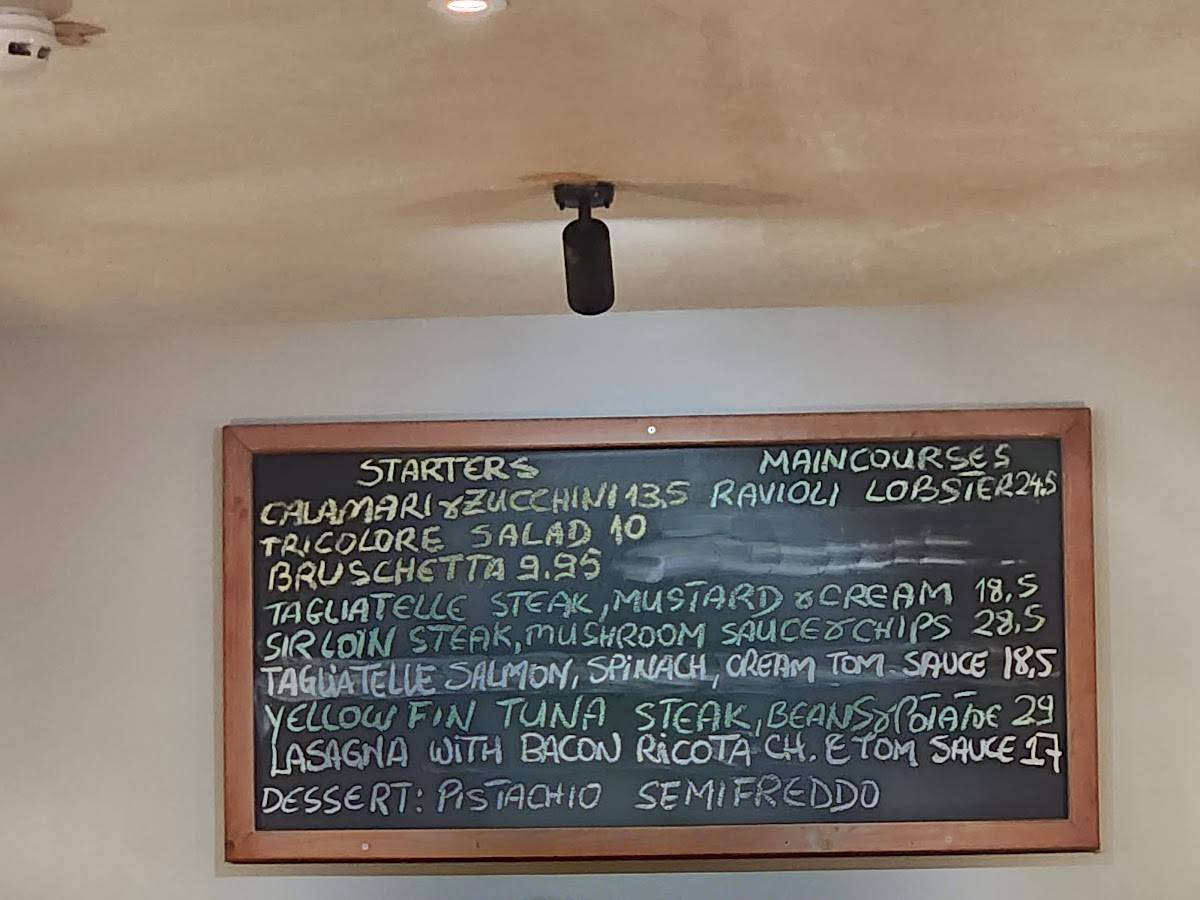 STARTERS
MAINCOURSES
CALAMARI & ZUCCHINI 13,5
RAVIOLI LOBSTER 24,5
TRICOLORE SALAD 10
BRUSCHETTA 9.95
TAGLIATELLE STEAK, MUSTARD & CREAM 18,5
SIRLOIN STEAK, MUSHROOM SAUCE & CHIPS 28,5
TAGLIATELLE SALMON, SPINACH, CREAM TOM. SAUCE 18,5
YELLOW FIN TUNA STEAK, BEANS & POTATOE 29
LASAGNA WITH BACON RICOTA CH. E TOM SAUCE 17
DESSERT: PISTACHIO SEMIFREDDO